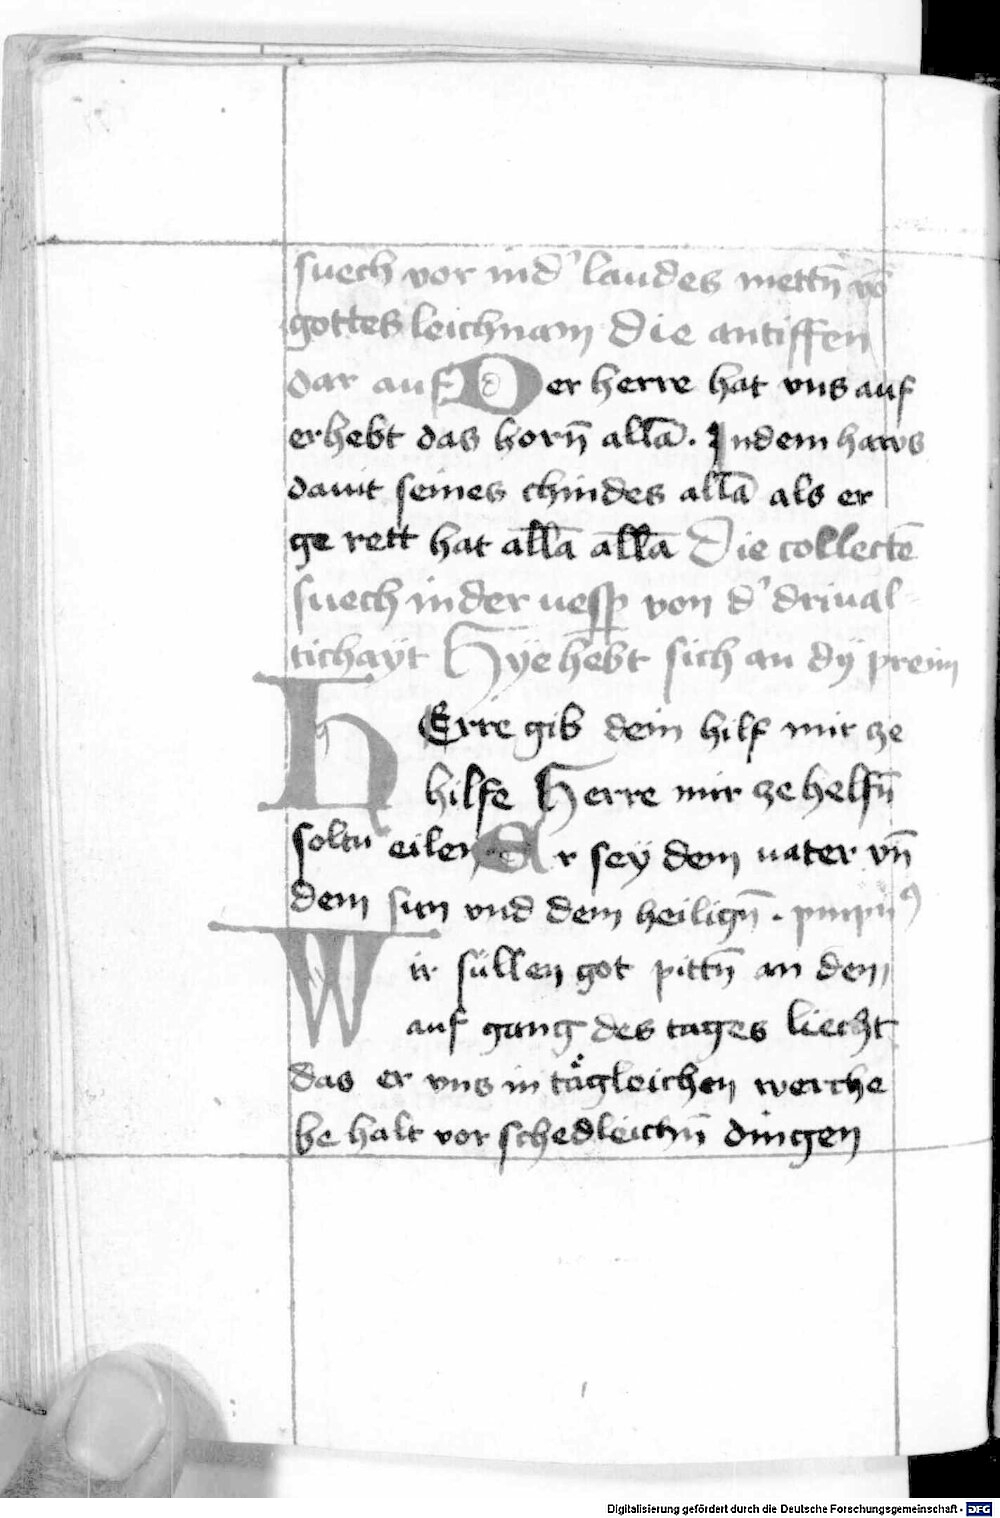 suech vor in d' laudes mettn̄ vō
gottes leichnam Die antiffen
dar auf Der herre hat vns auf
erhebt das horn̄ all̄a. In dem haws
dauit seines chindes all̄a als er
ge rett hat all̄a all̄a Die collectē
suech in der uesp̱ von d' driual
tichaÿt Hÿe hebt sich an dÿ preim
hErre gib dein hilf mir ze
hilfe Herre mir ze helfn̄
soltu eilen Er seÿ dem uater vn̄
dem sun vnd dem heilign̄.
Wir süllen got pittn̄ an dem
auf gang des tages liecht
das er vns in tågleichen werche
be halt vor schedleichn̄ dingen
Digitalisierung gefördert durch die Deutsche Forschungsgemeinschaft - DFG